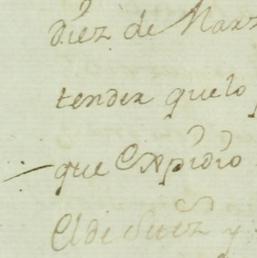 diez de Marz
tender quelo
que Expidio
El de Suez y